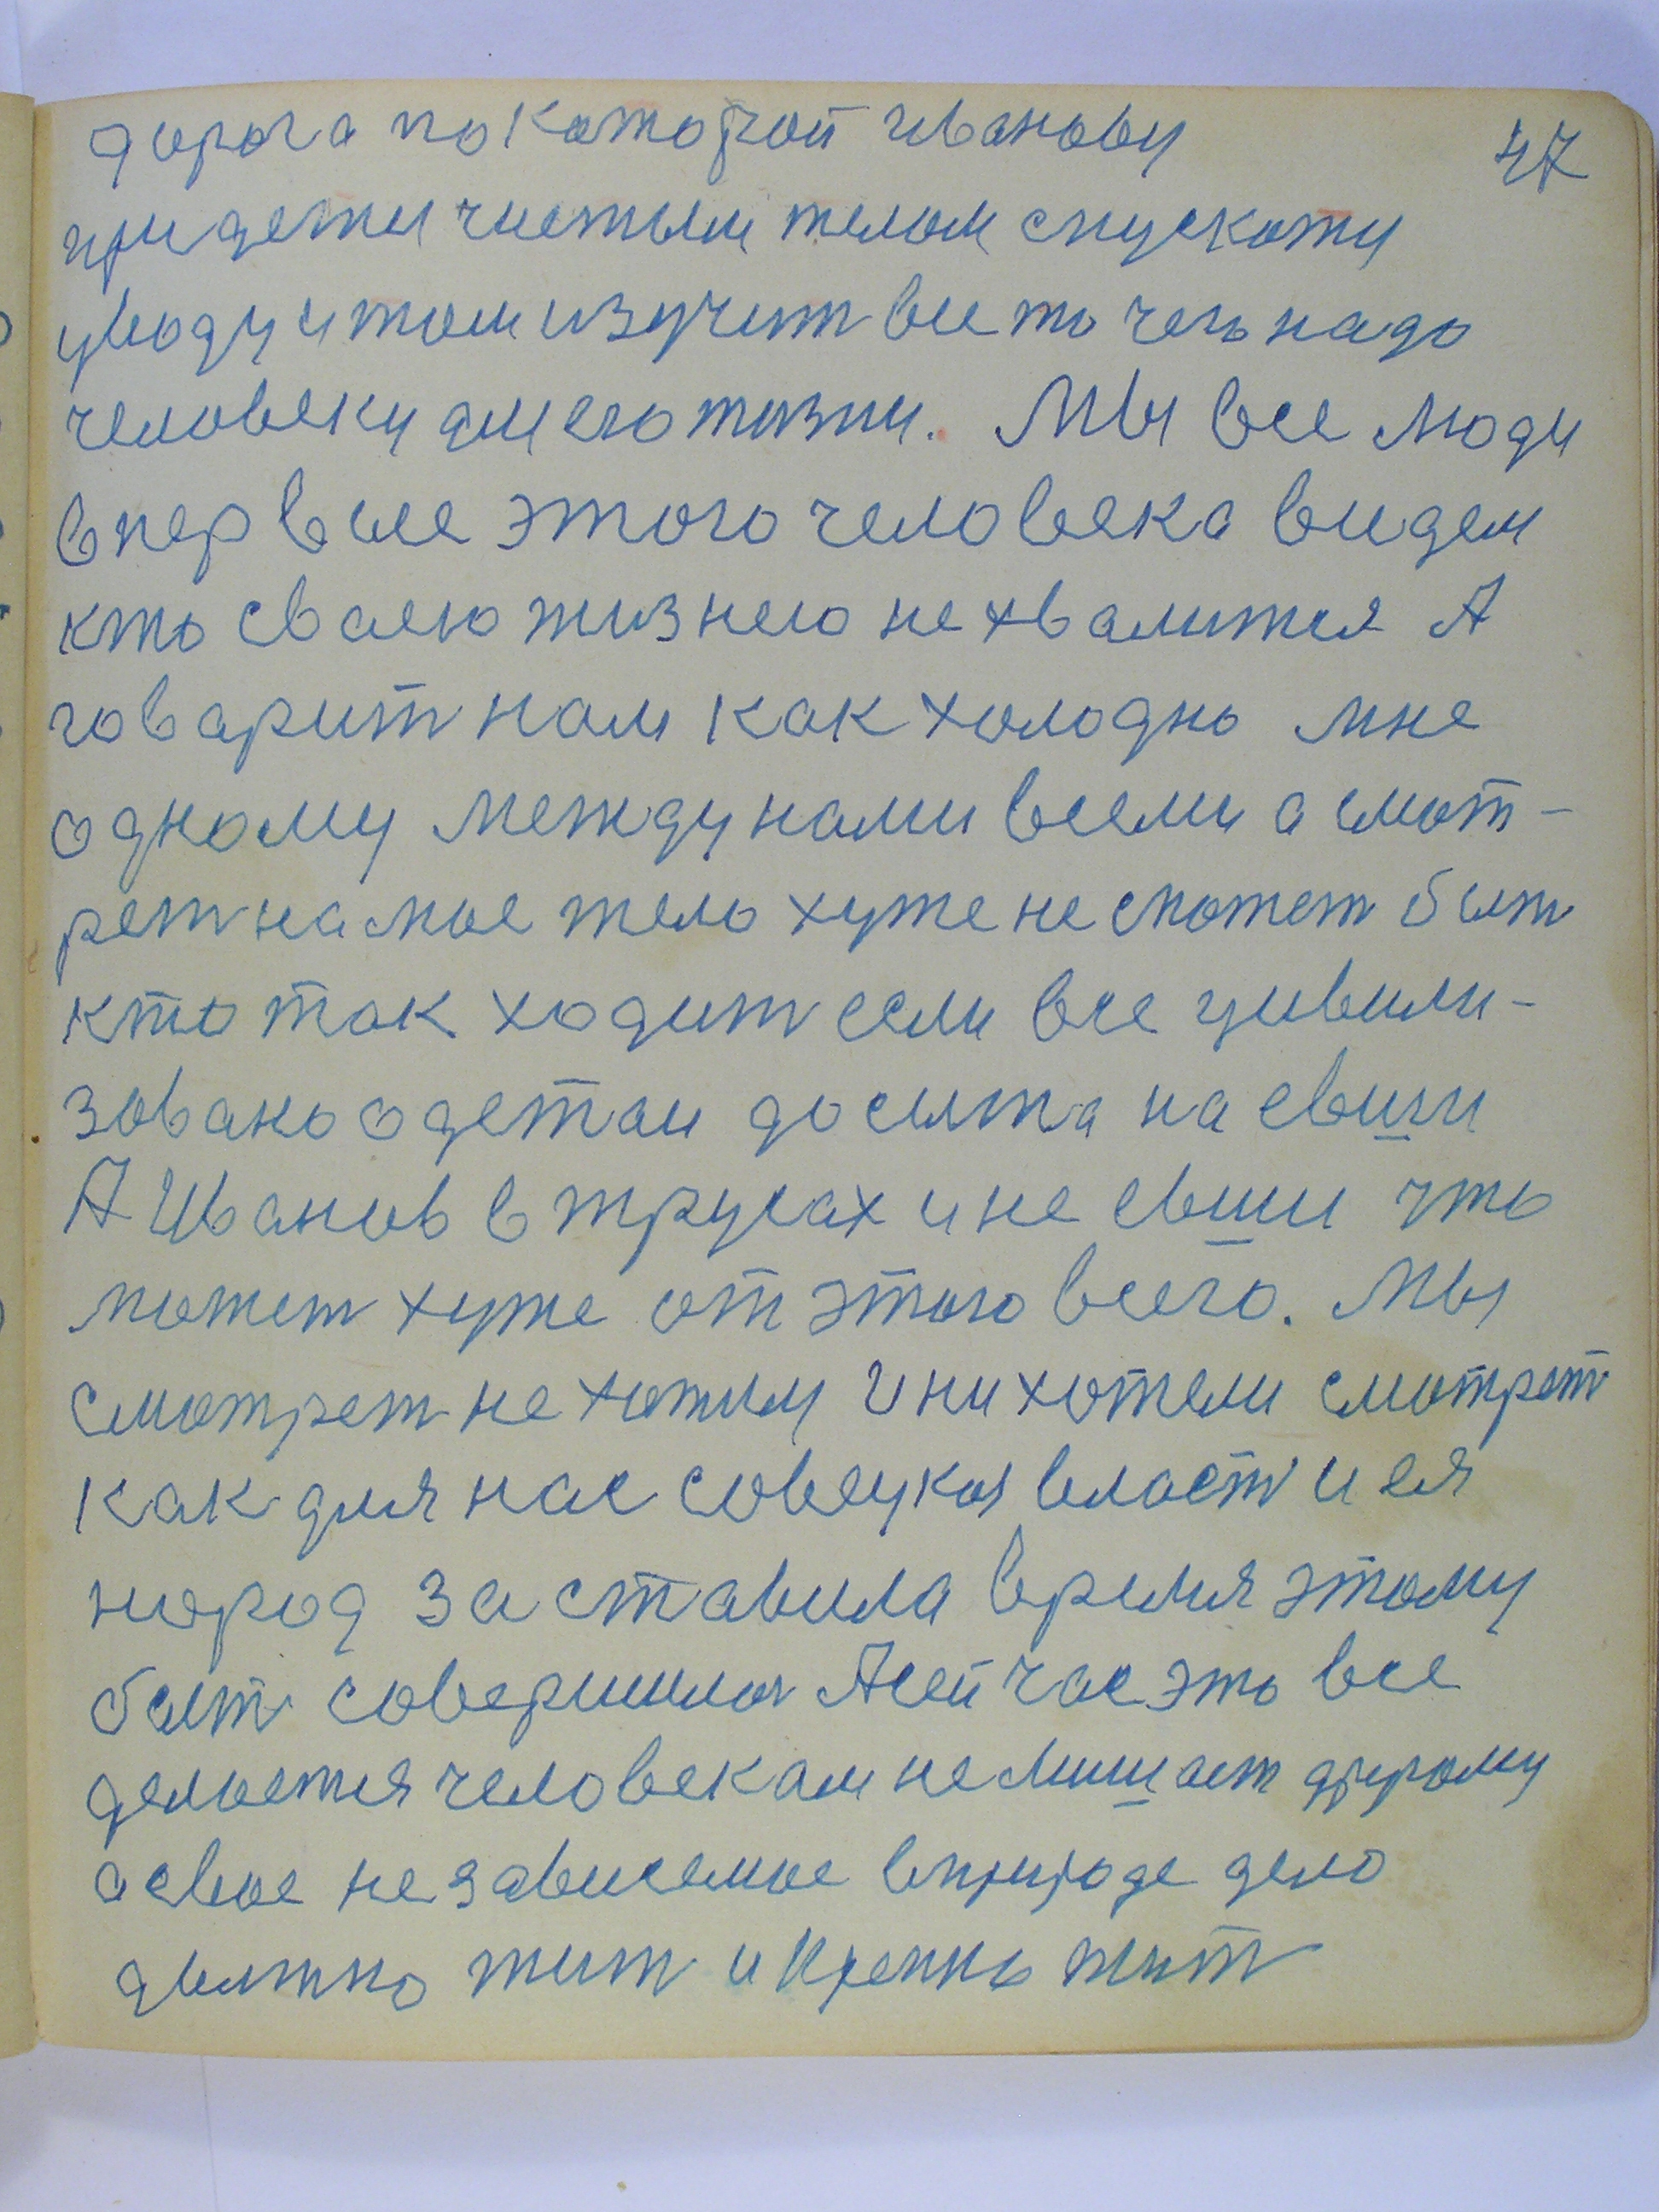 дорога по которой иванову 47
придети чистым телом спускоту
уводу и том изучит все то чего надо
человеку дли его жизни. Мы все люди
впервые этого человека видем
кто сваею жизнею не хвалится А
говарит нам как холодно мне
одному между нами всеми а смот-
рет на мое тело хуже не сможет быт
кто так ходит если все цивили-
зовано одетаи досыта наевши
А Иванов в трусах и не евши что
может хуже от этого всего. Мы
смотрет не хотим и ни хотели смотрет
как для нас совецкая власт и ея
народ заставила время этому
быт совершилос А сейчас это все
делается человекам не мишает другому
а свое независемое в природе дело
должно жит и крепко жит